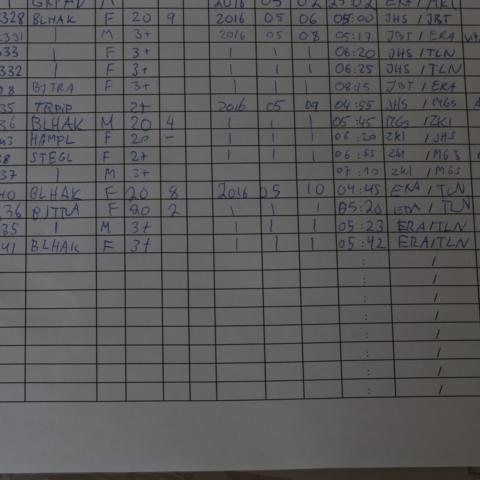 M 2016 05 02 23:02 ERA / MKI
328 BLHAK F 20 9 2016 05 06 05:00 JHS / JBT
331 | M 3+ 2016 05 08 05:17 JBT / ERA
333 | F 3+ | | | 06:20 JHS / TLN
332 | F 3+ | | | 06:25 JHS / TLN
08 BJTRA F 3+ | | | 08:15 JBT / ERA
35 2+ 2016 05 09 04:55 JHS / MGS
36 BLHAK M 20 4 | | | 05:45 MGS / ZKI
HAMPL F 20 - | | | 06:20 ZKI / JHS
58 STEGL F 2+ | | | 06:55 ZKI / MGS
37 | M 3+ 07:10 ZKI / MGS
40 BLHAK F 20 8 2016 05 10 04:45 ERA / TLN
36 BJTRA F 20 2 | | | 05:20 ERA / TLN
35 | M 3+ | | | 05:23 ERA/TLN
41 BLHAK F 3+ | | | 05:42 ERA/TLN
: /
: /
: /
: /
: /
: /
: /
: /